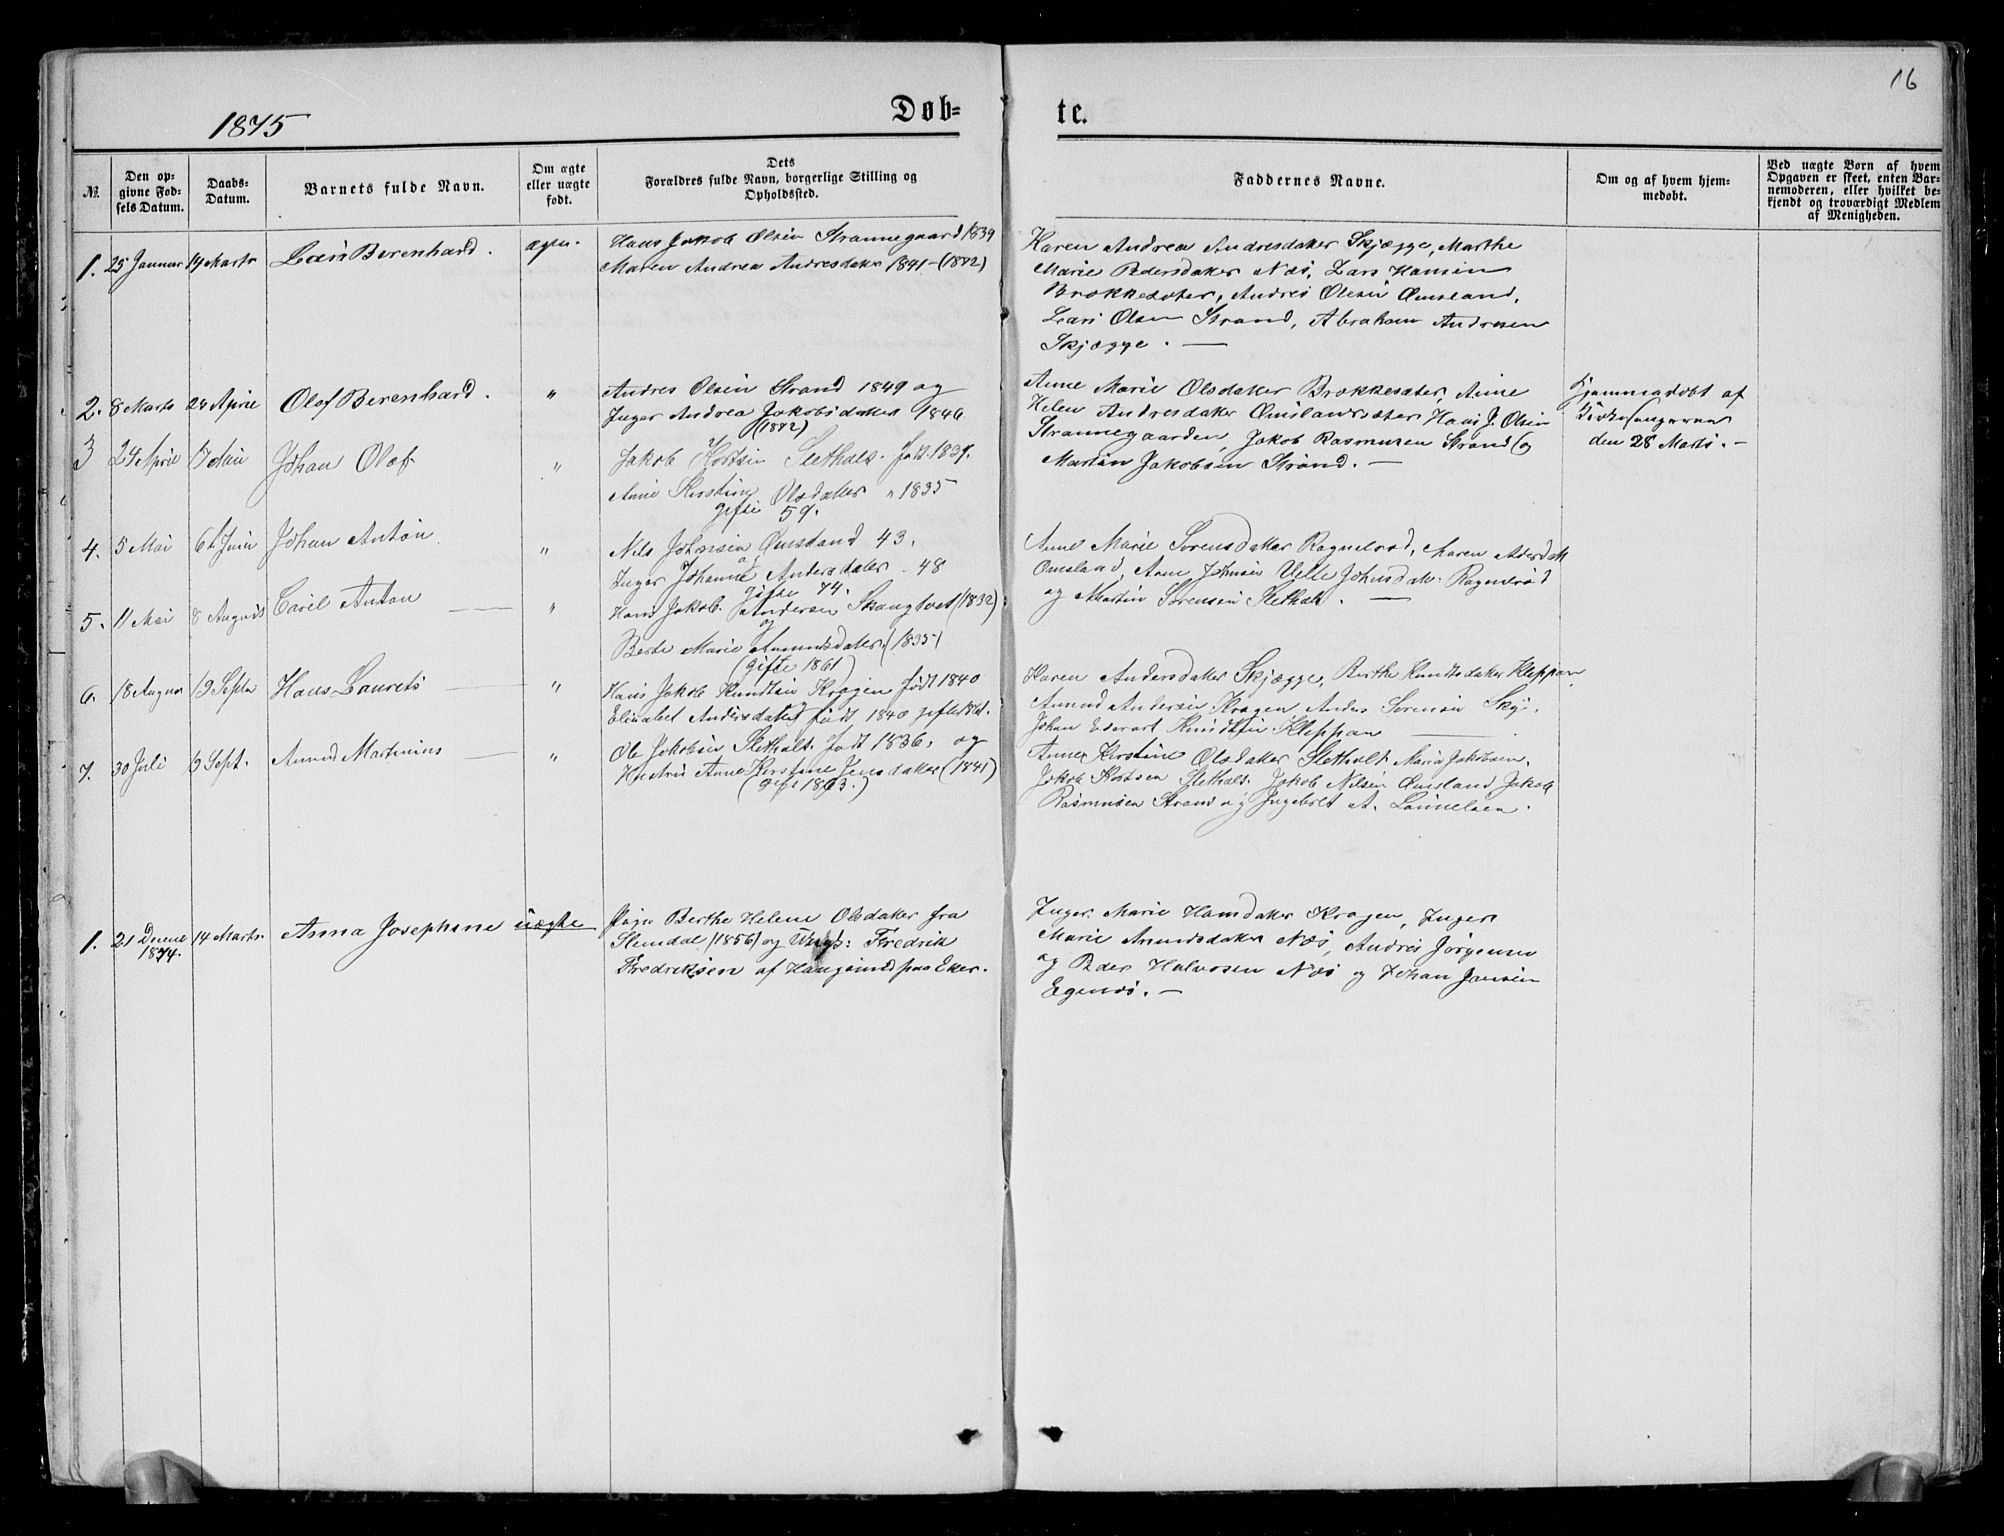 16
1875
Døb-
te.
№.
Den op-
givne Fød-
sels Datum.
Daabs-
Datum.
Barnets fulde Navn.
Om ægte
eller uægte
født.
Dets
Forældres fulde Navn, borgerlige Stilling og
Opholdssted.
Faddernes Navne.
Om og af hvem hjem-
medøbt.
Ved uægte Børn af hvem
Opgaven er skeet, enten Bar-
nemoderen, eller hvilket be-
kjendt og troværdigt Medlem
af Menigheden.
1. 25 Januar 14 Marts Lars Berenhard.
Hans Jakob Olsen Strannegaard 1839
Maren Andrea Andresdater 1841 - (1872)
Karen Andrea Andresdater Skjægge, Marthe
Marie Pedersdater Næs, Lars Hansen
Brokkesæter, Andres Olsen Omsland,
Lars Olsen Strand, Abraham Andresen
Skjægge. —
2. 8 Marts 24 April Olof Berenhard. "
Andres Olsen Strand 1849 og
Inger Andrea Jakobsdater 1846
(1872)
Anne Marie Olsdater Brokkesæter, Anne
Helen Andresdater Omslandsæter, Hans J. Olsen
Strannegaarden, Jakob Rasmusen Strand og
Martin Jakobsen Strand. —
Hjemmedøbt af
Kirkesangeren
den 28 Marts. —
3 24 April 17 Mai Johan Olaf "
Jakob Kortsen Slethalt. født. 1837.
Anne Kirstine Olsdater " 1835
gifte 59.
4. 5 Mai 6t Juni Johan Anton "
Nils Johnsen Omsland 43.
og
Inger Johanne Andersdater . 48
gifte 74.
Anne Marie Sorensdater Ragnelrød, Maren
Omsland, Johnsen Johnsdat. Ragnelrød
og Martin Sorensen Slethalt. —
5. 11 Mai 8 August Carel Anton — "
Hans Jakob Andersen (1832)
og
Berte Marie Amundsdater (1835)
(gifte 1861)
6. 18 August 19 Septbr Hans Laurets — "
Hans Jakob Knudtsen Kragen født 1840
Elisabet Andersdater født 1840 gifte
Karen Andersdater Skjægge, Berthe Knudtsdater Kleppan,
Amund Andersen Kragen Anders Sorensen
Johan Edvart Knudtsen Kleppan —
7. 30 Juli 19 Sept. Amund Martinius — "
Ole Jakobsen Slethalt. født 1836. og
Hustru Anne Kirstine Jensdater (1841)
(gift 1863.)
Anne Kirstine Olsdater Slethalt Maria Jakobsen,
Jakob Kortsen Slethalt. Jakob Nilsen Omsland, Jakob
Rasmusen Strand og Ingebret A.
1. 21 Decenbr 1874. 14 Marts. Anna Josephine uægte
Pige Berthe Helene Olsdater fra
Stendal (1856) og Ungk: Fredrik
Fredriksen af Haugsund paa Eker.
Inger Marie Hansdater Kragen, Inger
Marie Amundsdater Næs, Andres Jörgensen
og Peder Halvorsen Næs og Johan Jansen
Egenæs. —